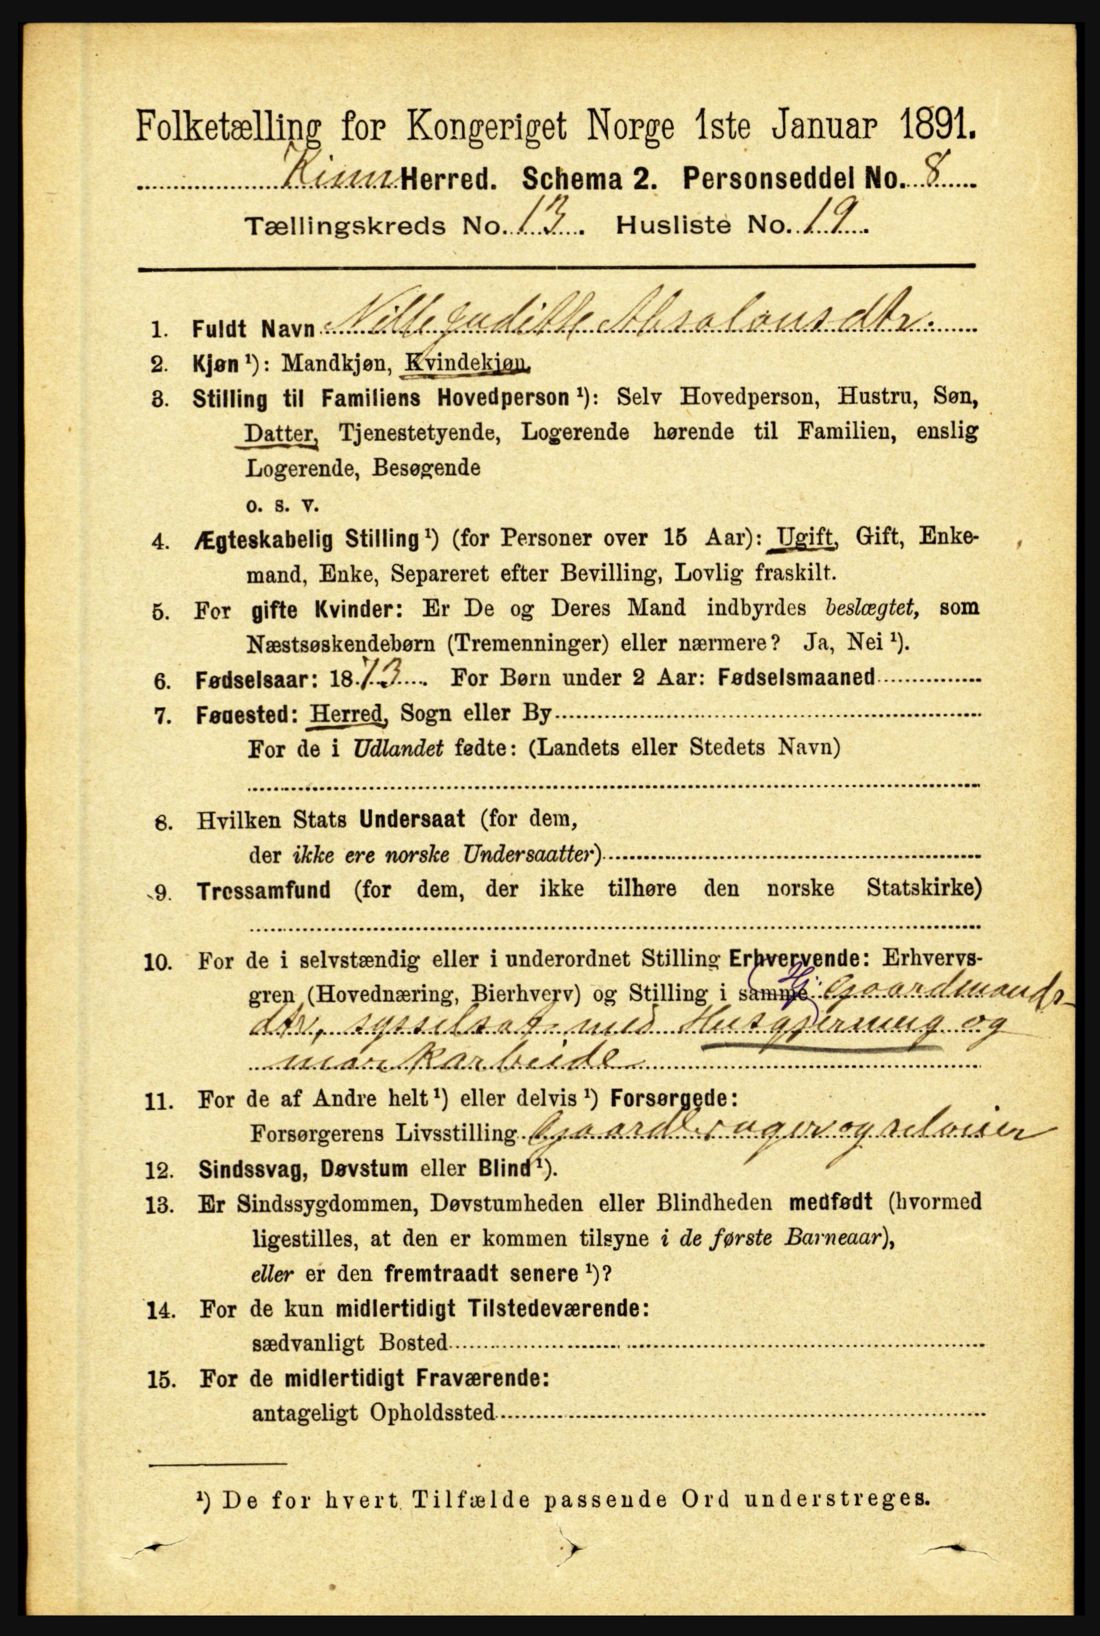 Folketælling for Kongeriget Norge 1ste Januar 1891.
Kinn Herred. Schema 2. Personseddel No. 8
Tællingskreds No. 13. Husliste No. 19.
1. Fuldt Navn Nille Juditte Absalonsdtr.
2. Kjøn ¹): Mandkjøn, Kvindekjøn.
3. Stilling til Familiens Hovedperson ¹): Selv Hovedperson, Hustru, Søn,
Datter, Tjenestetyende, Logerende hørende til Familien, enslig
Logerende, Besøgende
o. s. v.
4. Ægteskabelig Stilling ¹) (for Personer over 15 Aar): Ugift, Gift, Enke-
mand, Enke, Separeret efter Bevilling, Lovlig fraskilt.
5. For gifte Kvinder: Er De og Deres Mand indbyrdes beslægtet, som
Næstsøskendebørn (Tremenninger) eller nærmere? Ja, Nei ¹).
6. Fødselsaar: 1873. For Børn under 2 Aar: Fødselsmaaned
7. Føuested: Herred, Sogn eller By
For de i Udlandet fødte: (Landets eller Stedets Navn)
8. Hvilken Stats Undersaat (for dem,
der ikke ere norske Undersaatter)
9. Trossamfund (for dem, der ikke tilhøre den norske Statskirke)
10. For de i selvstændig eller i underordnet Stilling Erhvervende: Erhvervs-
gren (Hovednæring, Bierhverv) og Stilling i samme Hj. Gaardmands-
dtr, sysselsat med Husgjerning og
markarbeide
11. For de af Andre helt ¹) eller delvis ¹) Forsørgede:
Forsørgerens Livsstilling Gaardbruger og selveier
12. Sindssvag, Døvstum eller Blind ¹).
13. Er Sindssygdommen, Døvstumheden eller Blindheden medfødt (hvormed
ligestilles, at den er kommen tilsyne i de første Barneaar),
eller er den fremtraadt senere ¹)?
14. For de kun midlertidigt Tilstedeværende:
sædvanligt Bosted
15. For de midlertidigt Fraværende:
antageligt Opholdssted
¹) De for hvert Tilfælde passende Ord understreges.